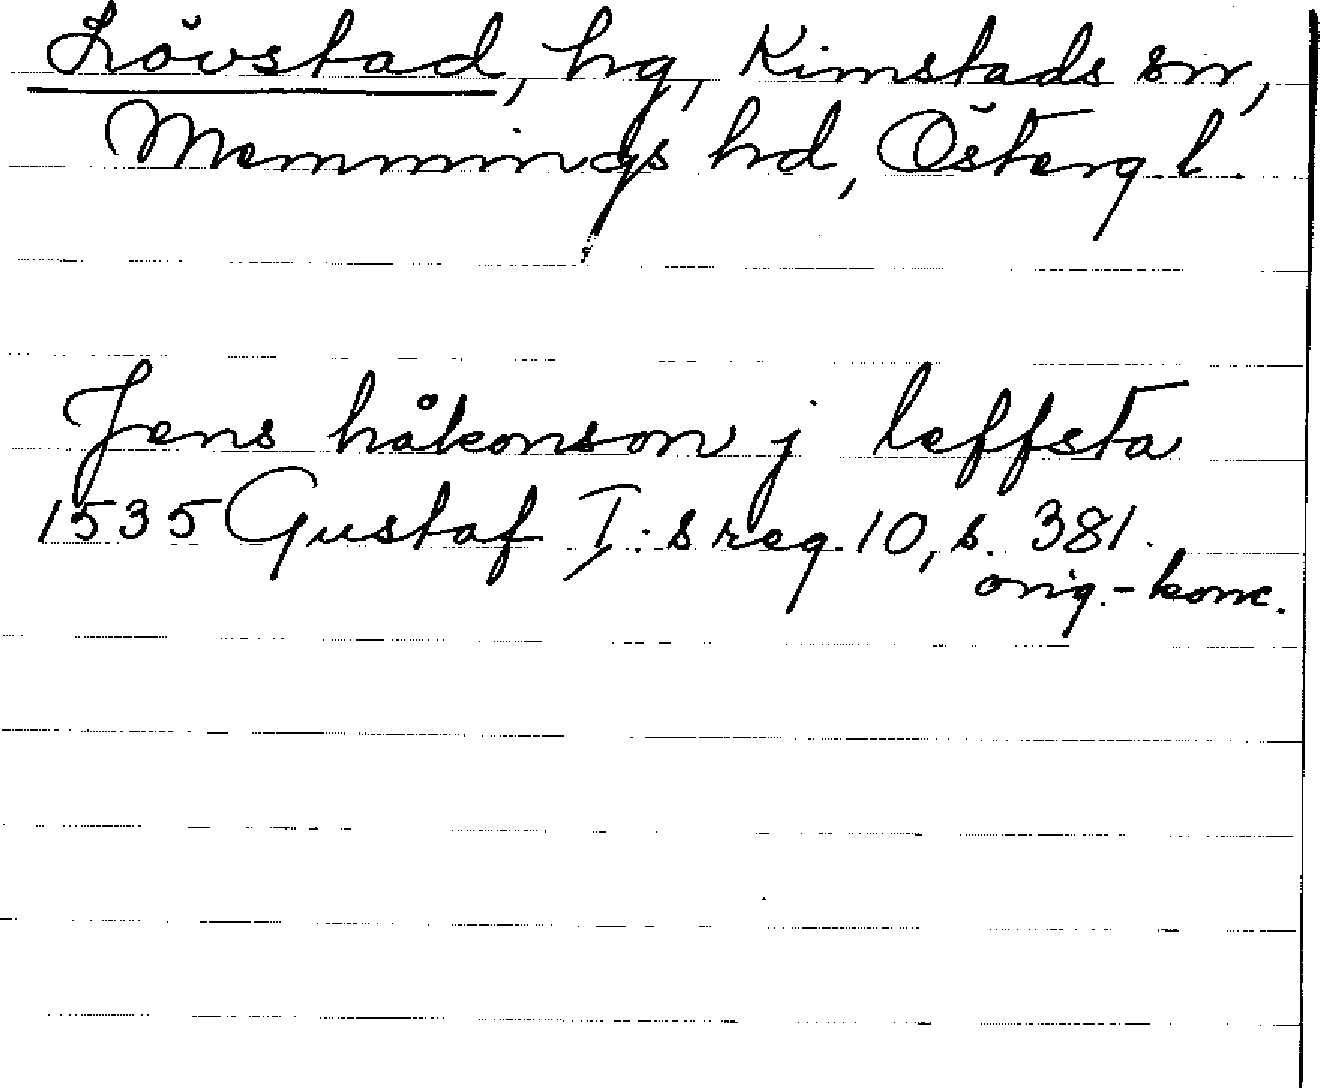 Lövstad, hg, Kimstads sn,
Memmings hd, Österg. l.
Jens håkonson j leffsta
1535 Gustaf I:s reg. 10, s. 381.
orig.-konc.